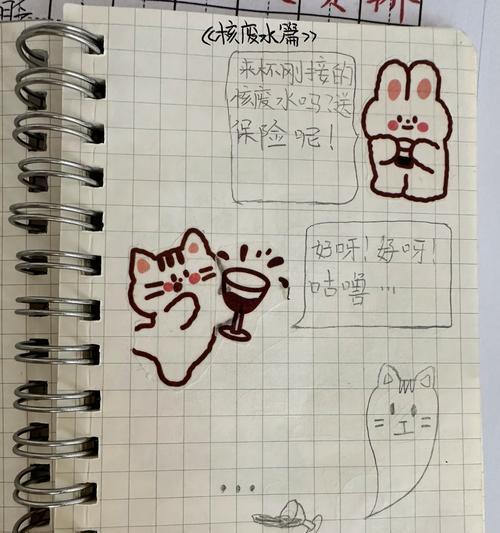 《核废水篇》
来杯刚接的
核废水吗？送
保险呢！
好呀！好呀！
咕噜…
...